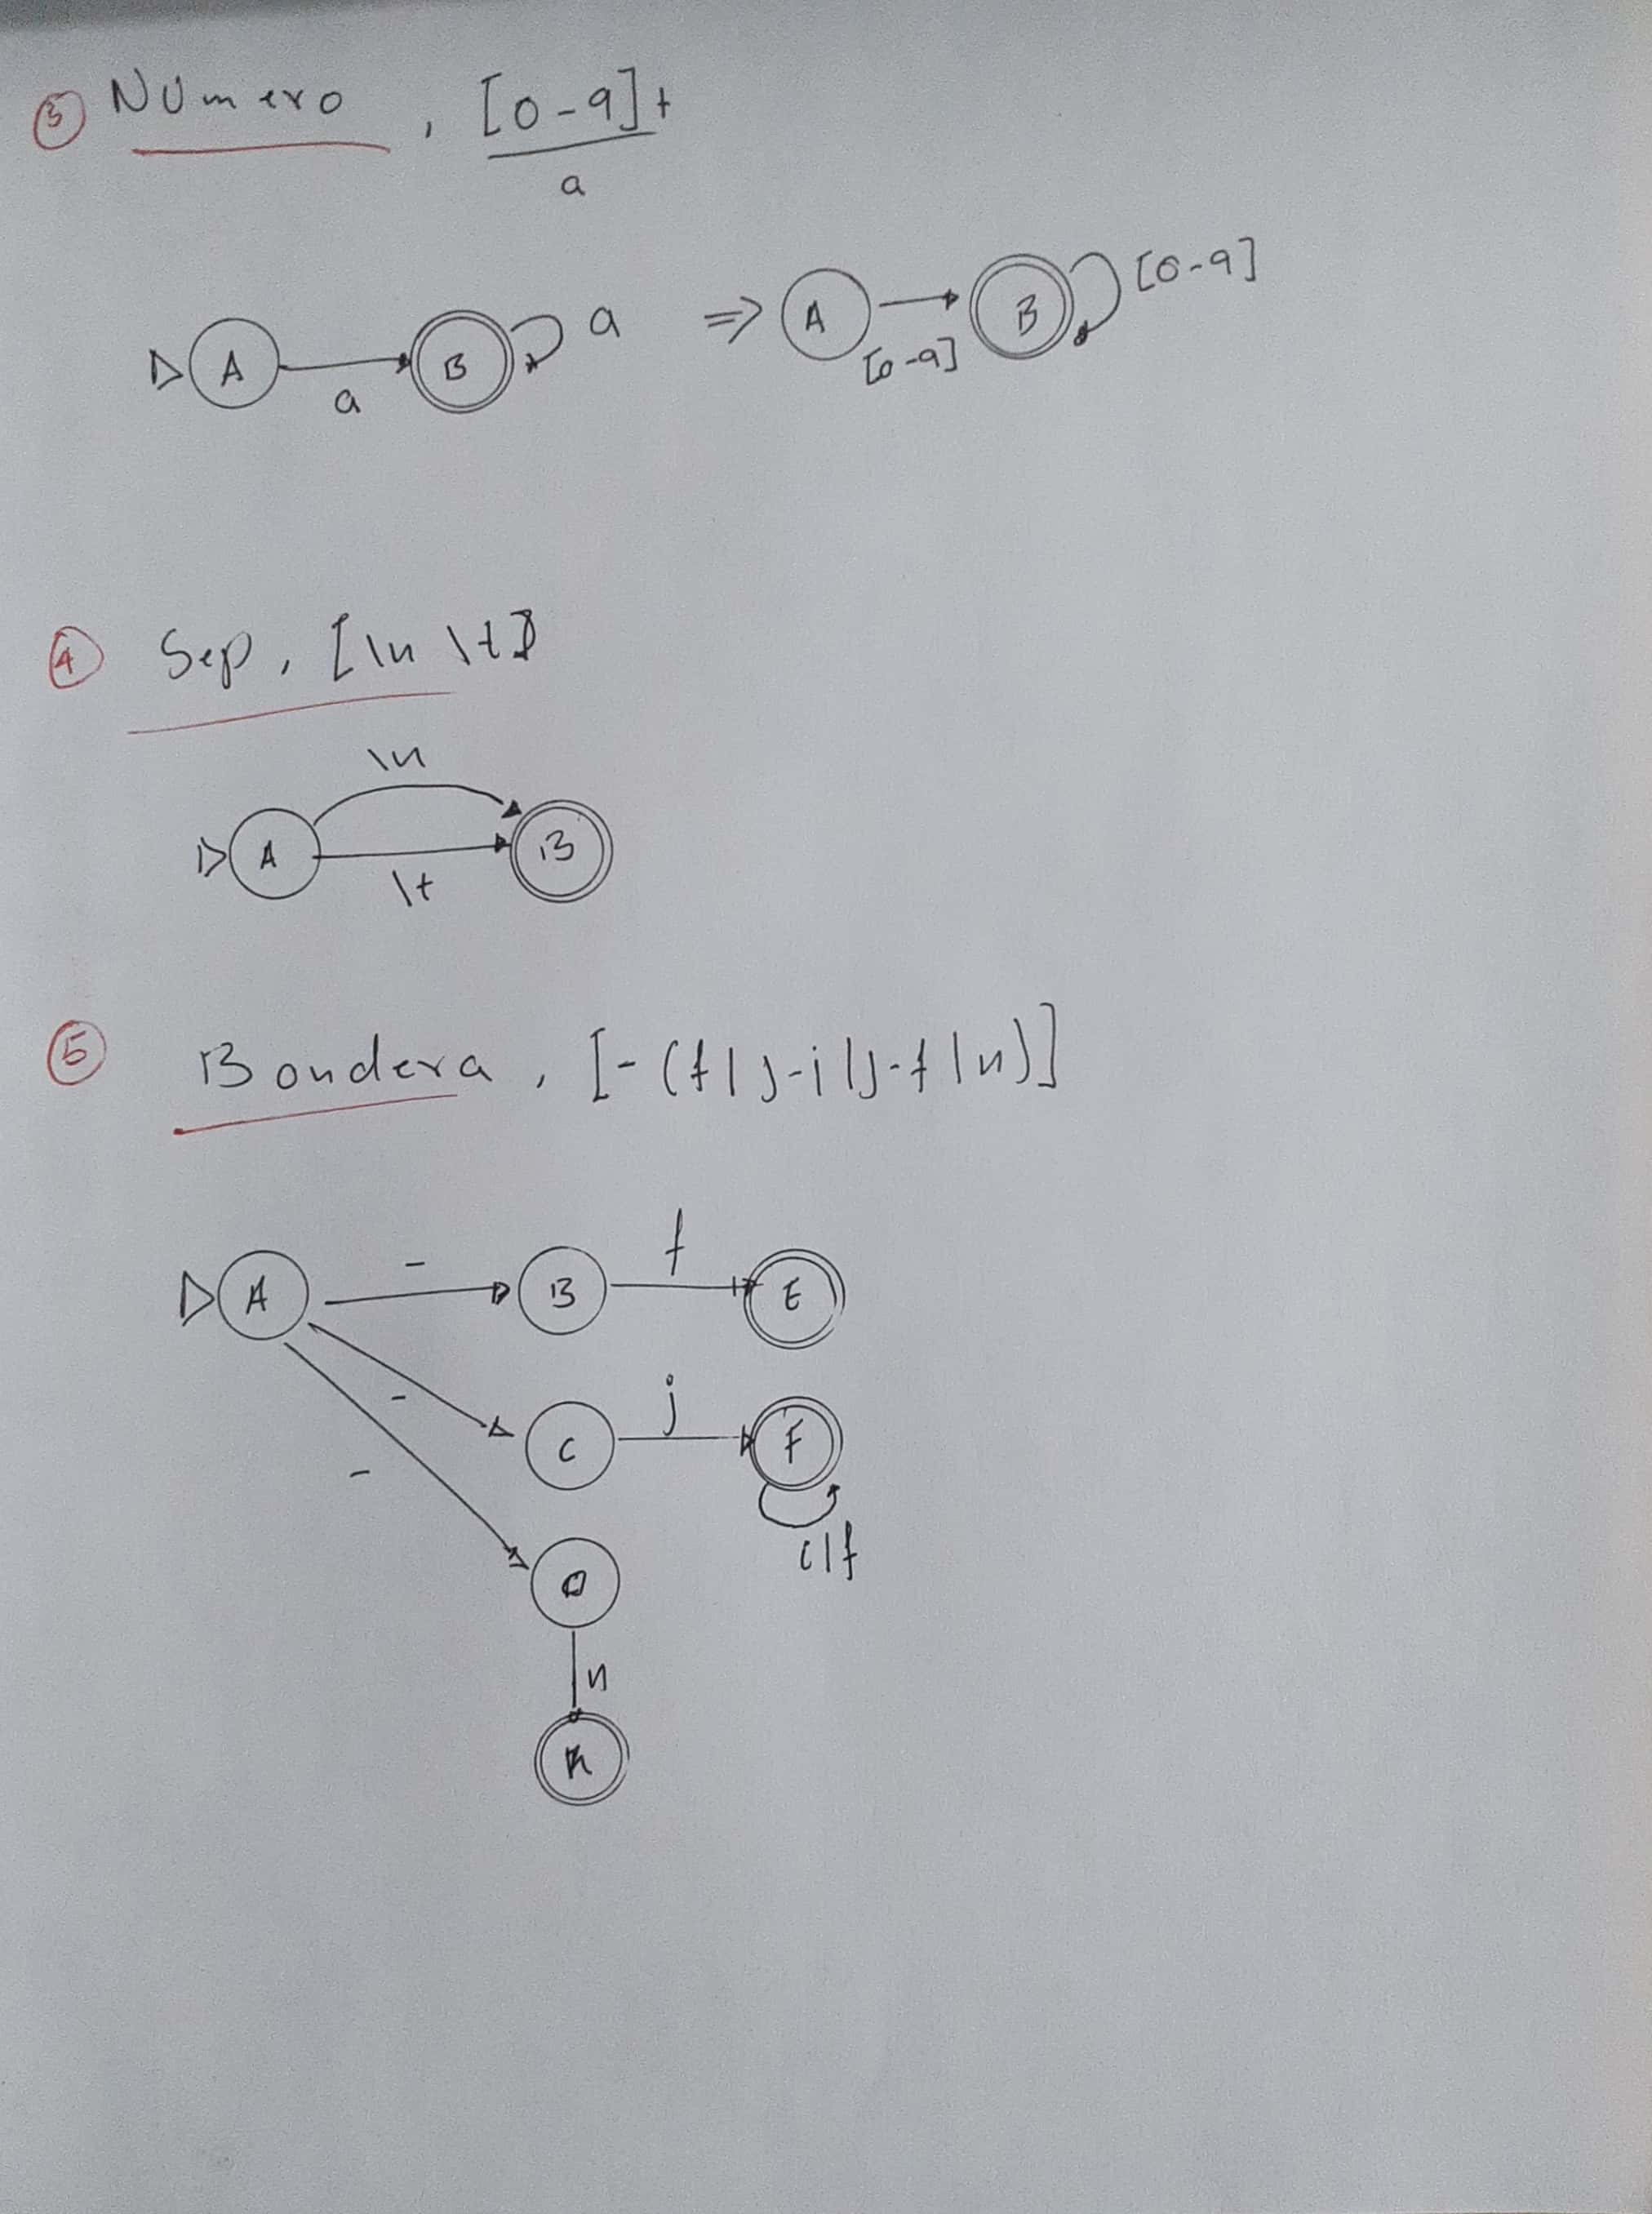 ③ Número , [0-9]+
a
A a B a ⇒ A [0-9] B [0-9]
④ Sep, [\n \t]
\n
A B
\t
⑤ Bandera, [-(f|j-i|j-f|n)]
A - B f E
- C j F
- D i|f
n